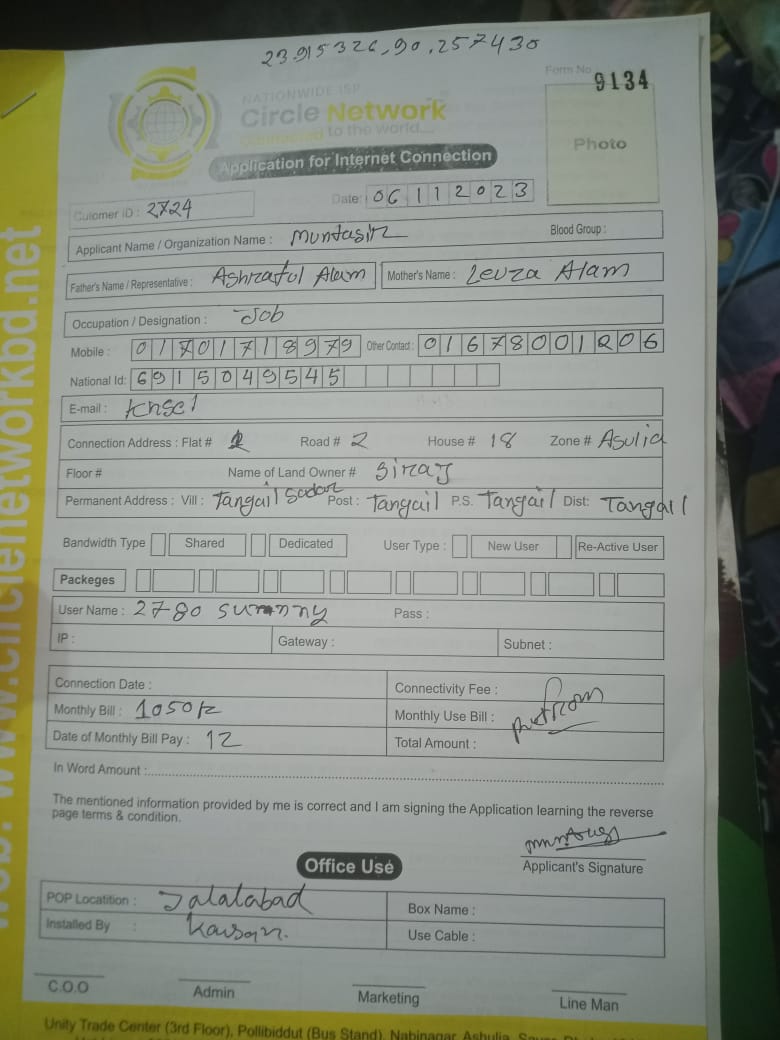 23.915326,90.257430
Form No
9134
NATIONWIDE ISP
Circle Network
Connected to the world....
Photo
Application for Internet Connection
Date: 06112023
Cutomer ID : 2724
Applicant Name / Organization Name : Muntasir Blood Group :
Father's Name / Representative : Ashraful Alam Mother's Name : Leuza Alam
Occupation / Designation : Job
Mobile : 01701718979 Other Contact : 01678001206
National Id: 6915049545
E-mail :
Connection Address : Flat # Road # 2 House # 18 Zone # Asulia
Floor # Name of Land Owner # Siraj
Permanent Address : Vill : Tangail Sadar Post : Tangail P.S. Tangail Dist: Tangail
Bandwidth Type Shared Dedicated User Type : New User Re-Active User
Packeges
User Name : 2780 sunny Pass :
IP : Gateway : Subnet :
Connection Date : Connectivity Fee :
Monthly Bill : 1050 Monthly Use Bill :
Date of Monthly Bill Pay : 12 Total Amount :
In Word Amount :
The mentioned information provided by me is correct and I am signing the Application learning the reverse
page terms & condition.
Applicant's Signature
Office Use
POP Locatition : Jalalabad Box Name :
Installed By : Use Cable :
C.O.O Admin Marketing Line Man
Unity Trade Center (3rd Floor), Pollibiddut (Bus Stand), Nabinagar, Ashulia,
Web: www.circlenetworkbd.net